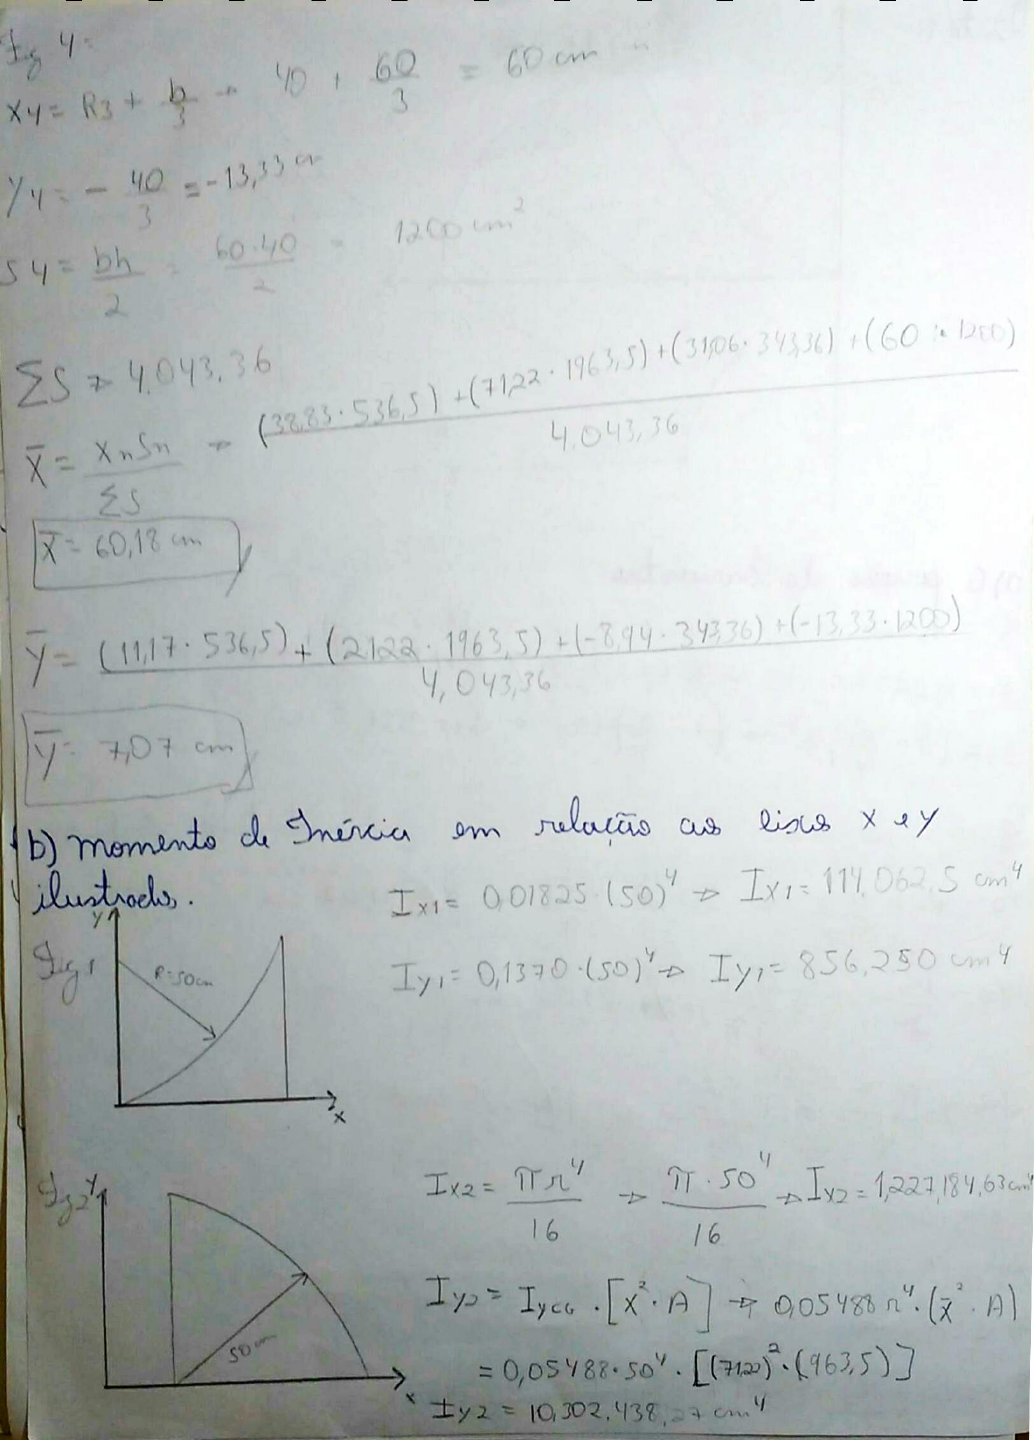 Fig 4:
X4 = R3 + b/3 → 40 + 60/3 = 60 cm
Y4 = - 40/3 = -13,33 cm
S4 = bh/2 = 60·40/2 = 1200 cm²
ΣS → 4.043,36
X̄ = XnSn/ΣS → (38,83 · 536,5) + (71,22 · 1963,5) + (31,06 · 343,36) + (60 · 1200) / 4,043,36
X̄ = 60,18 cm
Ȳ = (11,17 · 536,5) + (21,22 · 1963,5) + (-8,94 · 343,36) + (-13,33 · 1200) / 4,043,36
Ȳ = 7,07 cm
b) momento de Inércia em relação aos eixos x e y
ilustrados.
Ix1 = 0,01825 · (50)⁴ → Ix1 = 114,062,5 cm⁴
Fig 1
Y
R=50cm
X
Iy1 = 0,1370 · (50)⁴ → Iy1 = 856,250 cm⁴
Fig 2
Y
50 cm
x
Ix2 = πr⁴/16 → π · 50⁴/16 → Ix2 = 1,227,184,63 cm⁴
Iy2 = Iycg · [x² · A] → 0,05488 r⁴ · (x̄² · A)
= 0,05488 · 50⁴ · [(71,22)² · (963,5)]
Iy2 = 10,302,438,27 cm⁴